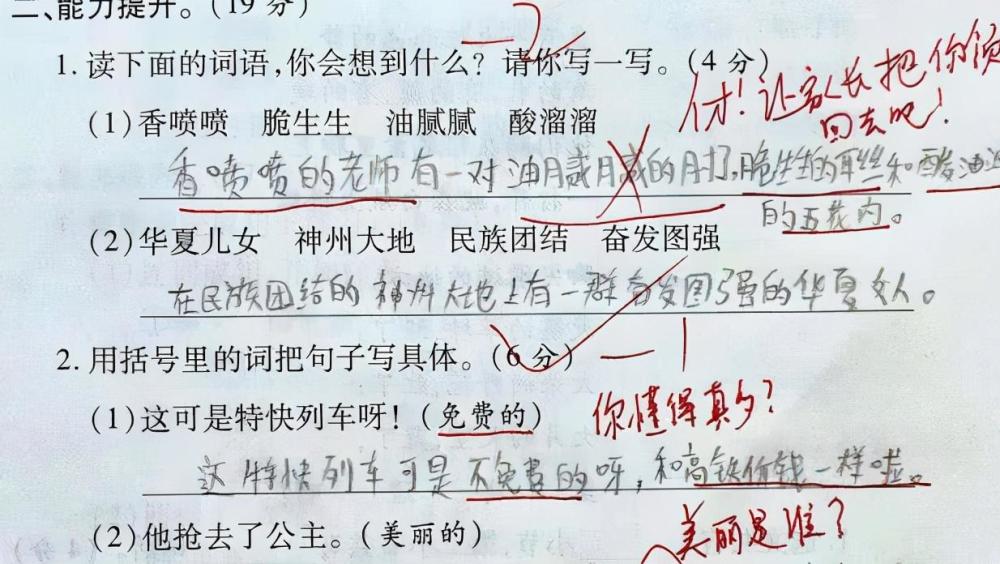 二、能力提升。(19分)
1. 读下面的词语,你会想到什么? 请你写一写。(4分)
让家长把你领
回去吧!
(1)香喷喷 脆生生 油腻腻 酸溜溜
香喷喷的老师有一对油腻腻的肘,脆生生的耳丝和酸溜溜
的五花肉。
(2)华夏儿女 神州大地 民族团结 奋发图强
在民族团结的神州大地上有一群奋发图强的华夏女人。
2. 用括号里的词把句子写具体。(6分) — 1
(1)这可是特快列车呀!(免费的)
你懂得真多?
这特快列车可是不免费的呀,和高铁价钱一样啦。
(2)他抢去了公主。(美丽的)
美丽是谁?